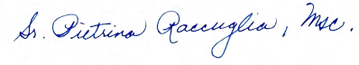 Sr. Pietrina Raccuglia, msc.